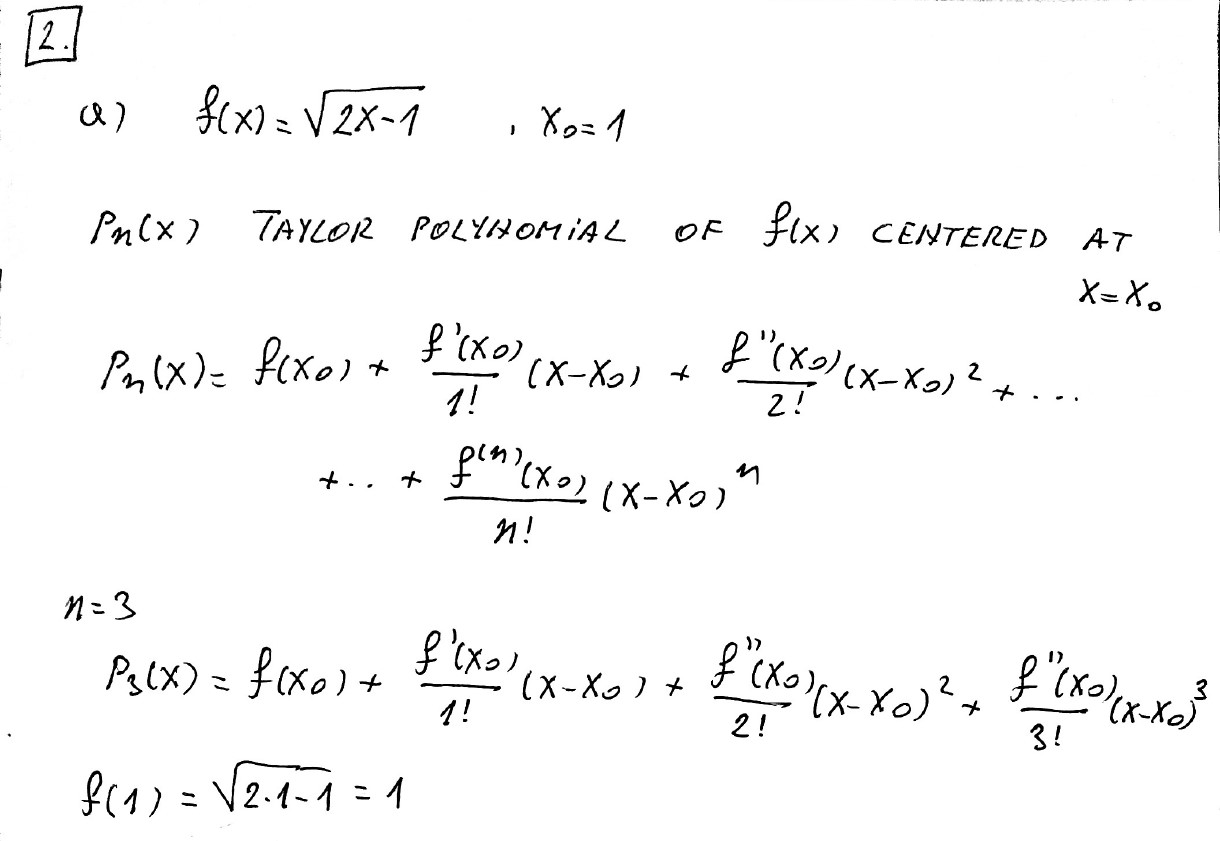 2.
a) f(x) = √(2x-1) , x₀ = 1
Pn(x) TAYLOR POLYNOMIAL OF f(x) CENTERED AT
x = x₀
Pn(x) = f(x₀) + f'(x₀)/1! (x-x₀) + f''(x₀)/2! (x-x₀)² + ...
+ .. + f⁽ⁿ⁾(x₀)/n! (x-x₀)ⁿ
n = 3
P₃(x) = f(x₀) + f'(x₀)/1! (x-x₀) + f''(x₀)/2! (x-x₀)² + f''(x₀)/3! (x-x₀)³
f(1) = √(2·1-1) = 1